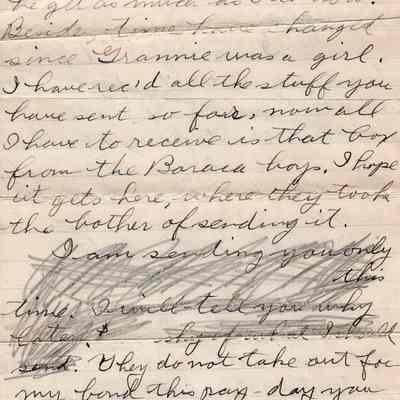 he get as much as
Besides times have changed
since Grannie was a girl.
I have rec'd all the stuff you
have sent so far, now all
I have to receive is that box
from the Baraca boys. I hope
it gets here, where they took
the bother of sending it.
I am sending you only
this
time. I will tell you why
later. $
send. They do not take out for
my bond this pay-day you